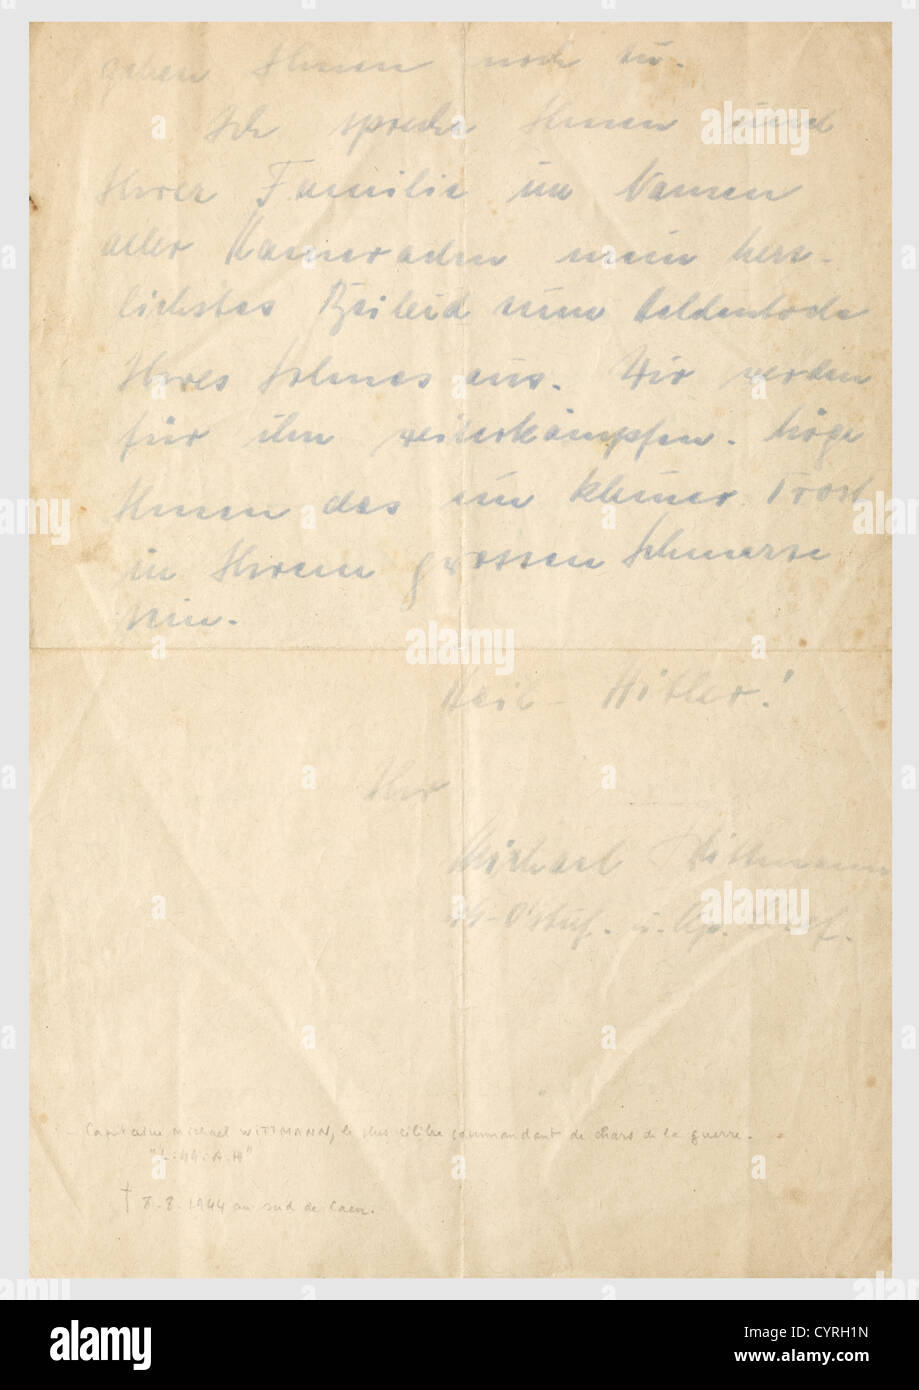 gehen Ihnen noch zu.
Ich spreche Ihnen und
Ihrer Familie im Namen
aller Kameraden mein herz-
lichstes Beileid zum Heldentode
Ihres Sohnes aus. Wir werden
für ihn weiterkämpfen. Möge
Ihnen das ein kleiner Trost
in Ihrem grossen Schmerze
sein.
Heil - Hitler!
Ihr
Michael Wittmann
SS-O'Stuf. u. Kp. Chef.
Capitaine Michael WITTMANN, le plus célèbre commandant de chars de la guerre.
"L.SS.A.H"
† 8.8.1944 au sud de Caen.
alamy
Image ID: CYRH1N
www.alamy.com